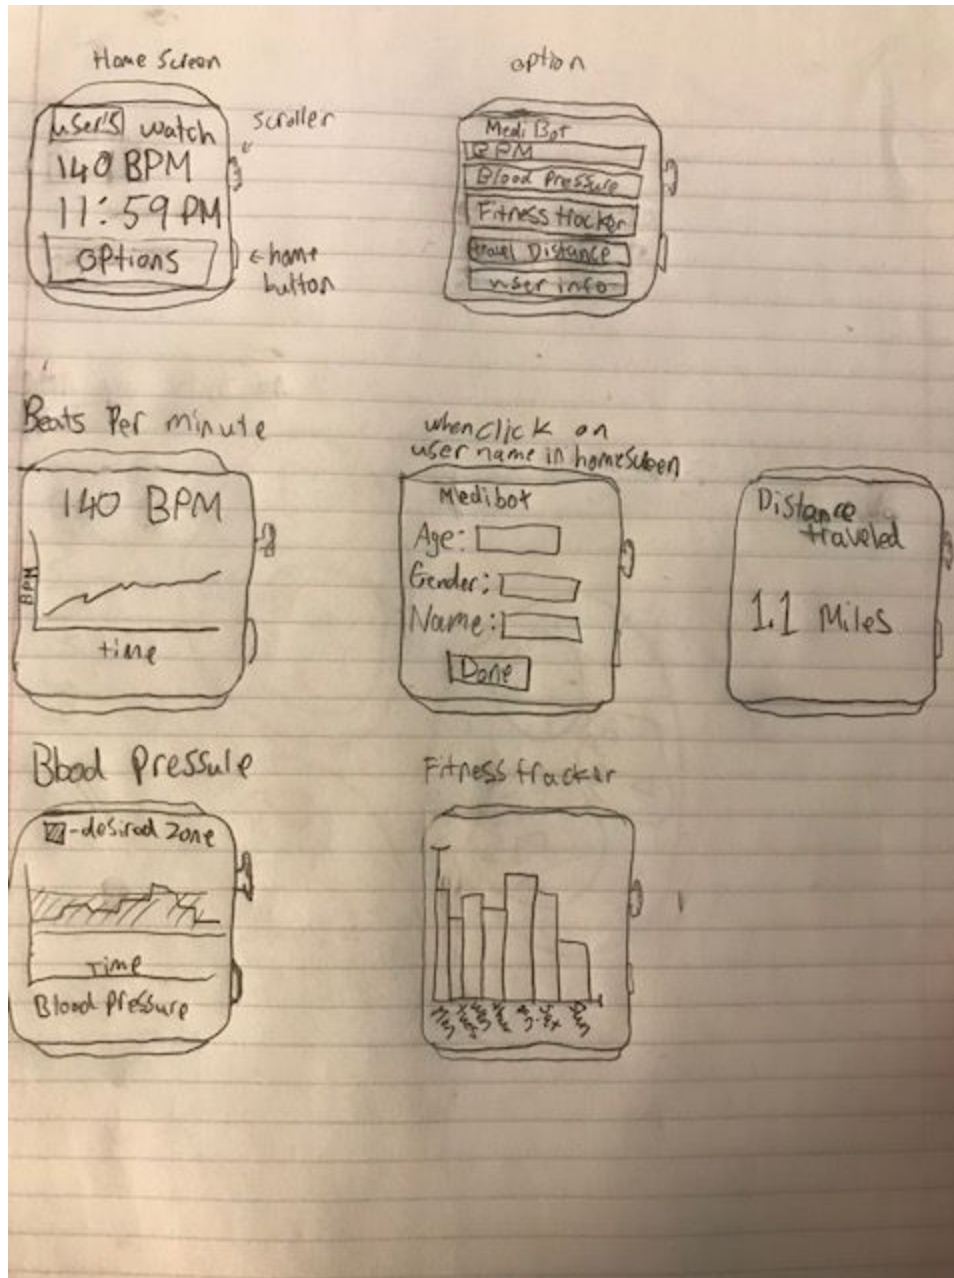 Home Screen
user's watch
140 BPM
11:59 PM
options
scroller
←home
button
option
Medi Bot
BPM
Blood Pressure
Fitness tracker
travel Distance
user info
Beats Per minute
140 BPM
BPM
time
when click on
user name in homescreen
Medibot
Age:
Gender:
Name:
Done
Distance
traveled
1.1 Miles
Blood Pressure
-desired zone
Time
Blood pressure
Fitness tracker
Mon
Tues
Wed
Thur
Fri
Sat
Sun